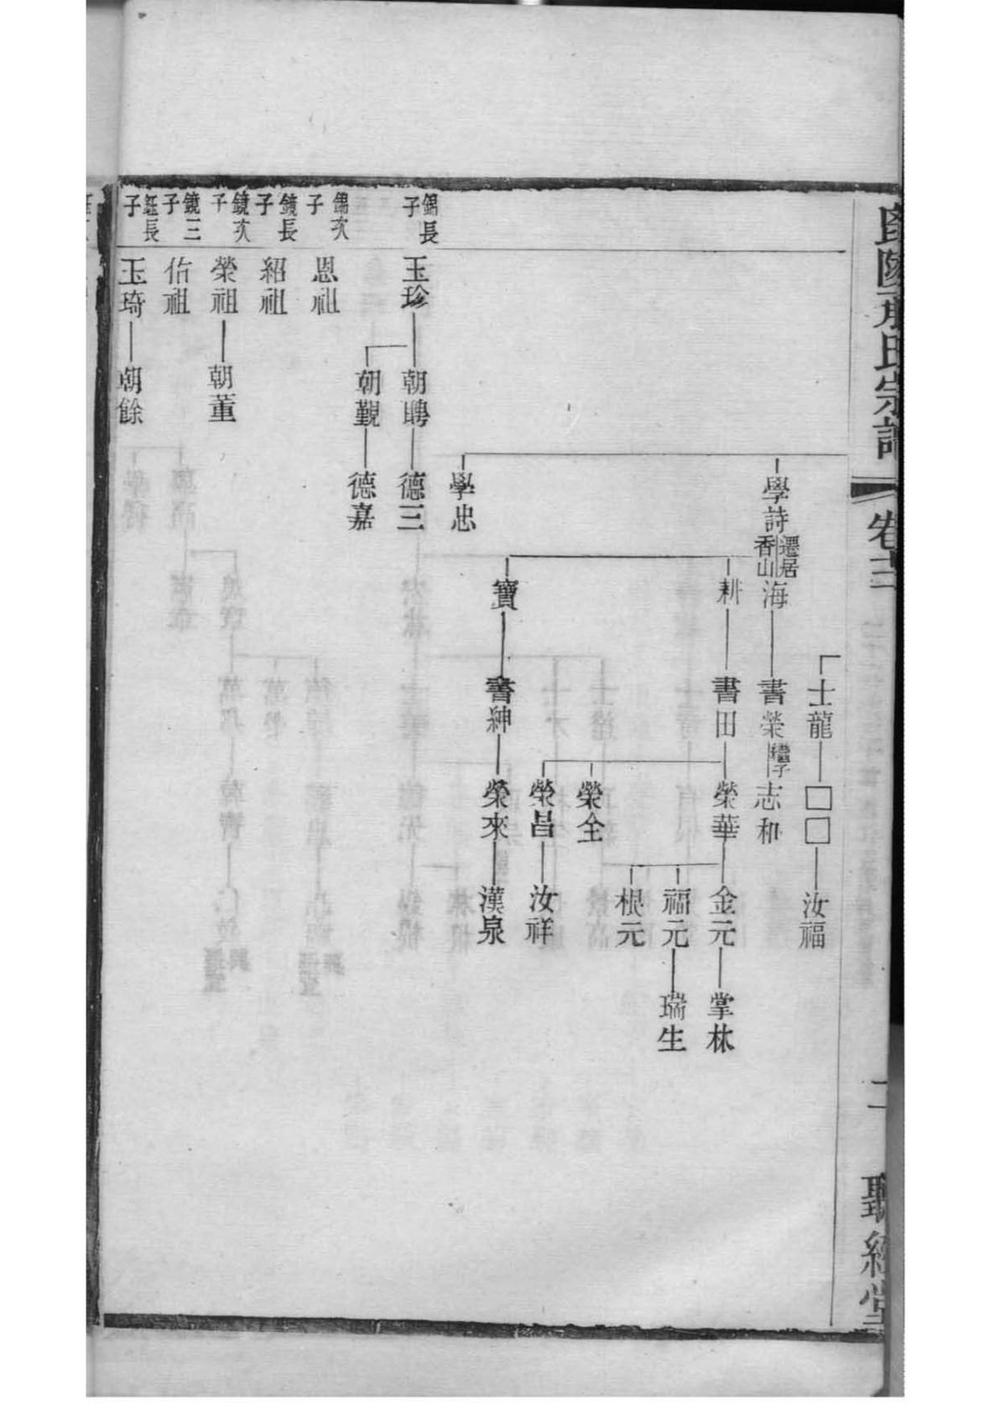 氏宗譜
卷十二
二
聽經堂
士龍
□□
汝福
學詩
遷居
香山
海
書榮
繼子
志和
耕
書田
榮華
金元
掌林
福元
瑞生
根元
榮全
榮昌
汝祥
寶
書紳
榮來
漢泉
學忠
錫長
子
玉珍
朝聘
德三
朝覲
德嘉
錫次
子
恩祖
鏡長
子
紹祖
鏡次
子
榮祖
朝董
鏡三
子
佑祖
鈺長
子
玉琦
朝餘